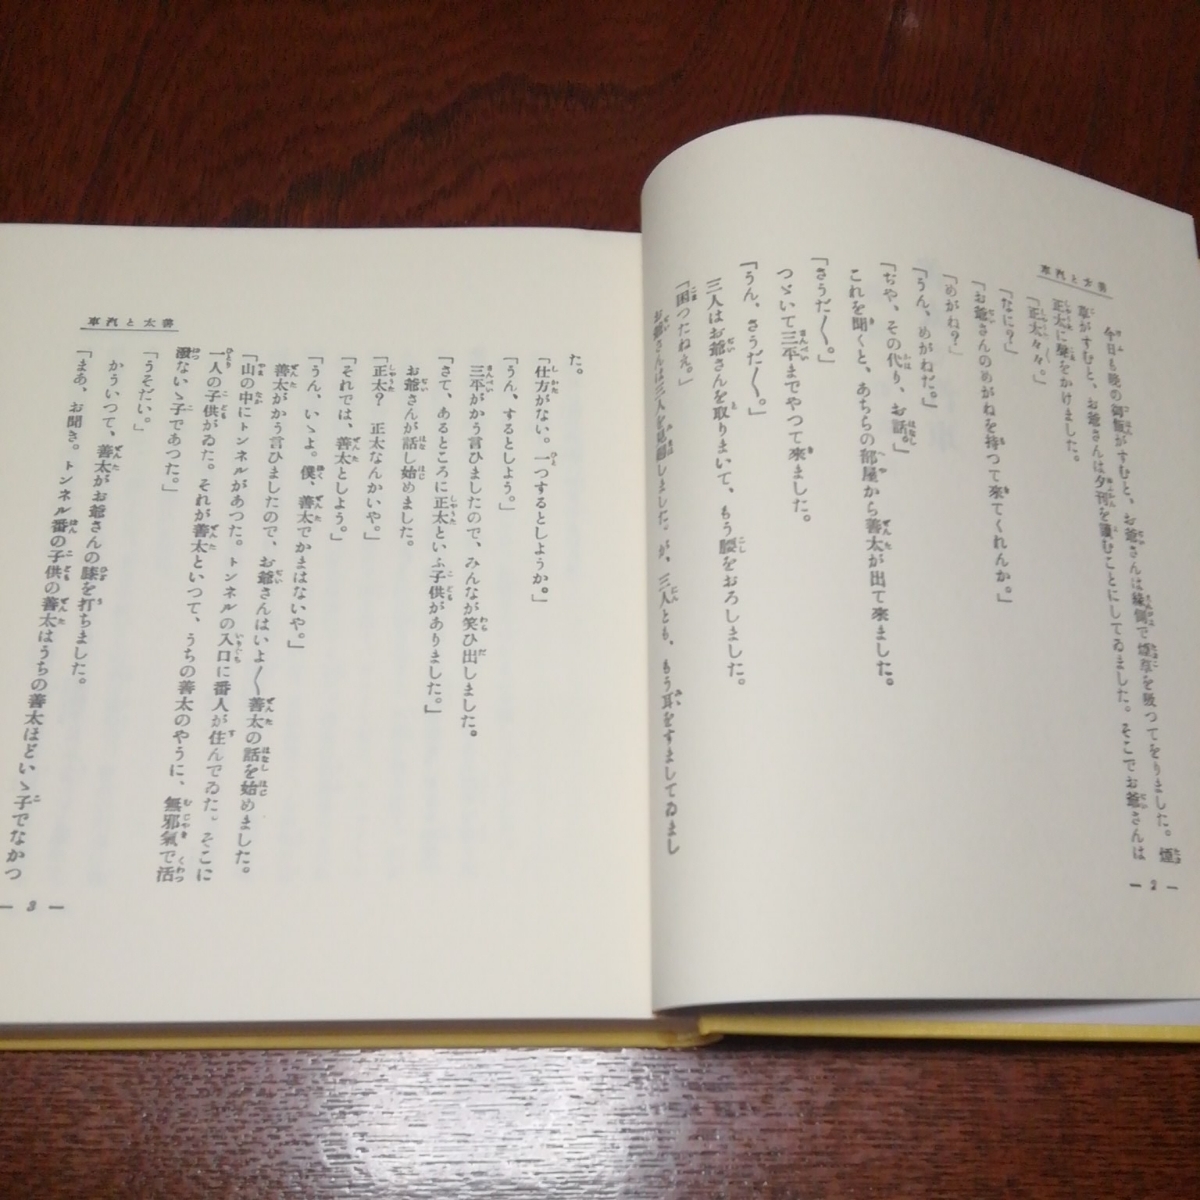 車汽と太善
今日も晩の御飯がすむと、お爺さんは縁側で煙草を吸つてをりました。煙
草がすむと、お爺さんは夕刊を讀むことにしてゐました。そこでお爺さんは
正太に聲をかけました。
「正太々々。」
「なに？」
「お爺さんのめがねを持つて來てくれんか。」
「めがね？」
「うん、めがねだ。」
「ぢや、その代り、お話。」
これを聞くと、あちらの部屋から善太が出て來ました。
「さうだ〳〵。」
つゞいて三平までやつて來ました。
「うん、さうだ〳〵。」
三人はお爺さんを取りまいて、もう腰をおろしました。
「困つたねえ。」
お爺さんは三人を見廻しました。が、三人とも、もう耳をすましてゐまし
— 2 —
車汽と太善
た。
「仕方がない。一つするとしようか。」
「うん、するとしよう。」
三平がかう言ひましたので、みんなが笑ひ出しました。
「さて、あるところに正太といふ子供がありました。」
お爺さんが話し始めました。
「正太？　正太なんかいや。」
「それでは、善太としよう。」
「うん、いゝよ。僕、善太でかまはないや。」
善太がかう言ひましたので、お爺さんはいよ〳〵善太の話を始めました。
「山の中にトンネルがあつた。トンネルの入口に番人が住んでゐた。そこに
一人の子供がゐた。それが善太といつて、うちの善太のやうに、無邪氣で活
潑ないゝ子であつた。」
「うそだい。」
かういつて、善太がお爺さんの膝を打ちました。
「まあ、お聞き。トンネル番の子供の善太はうちの善太ほどいゝ子でなかつ
— 3 —